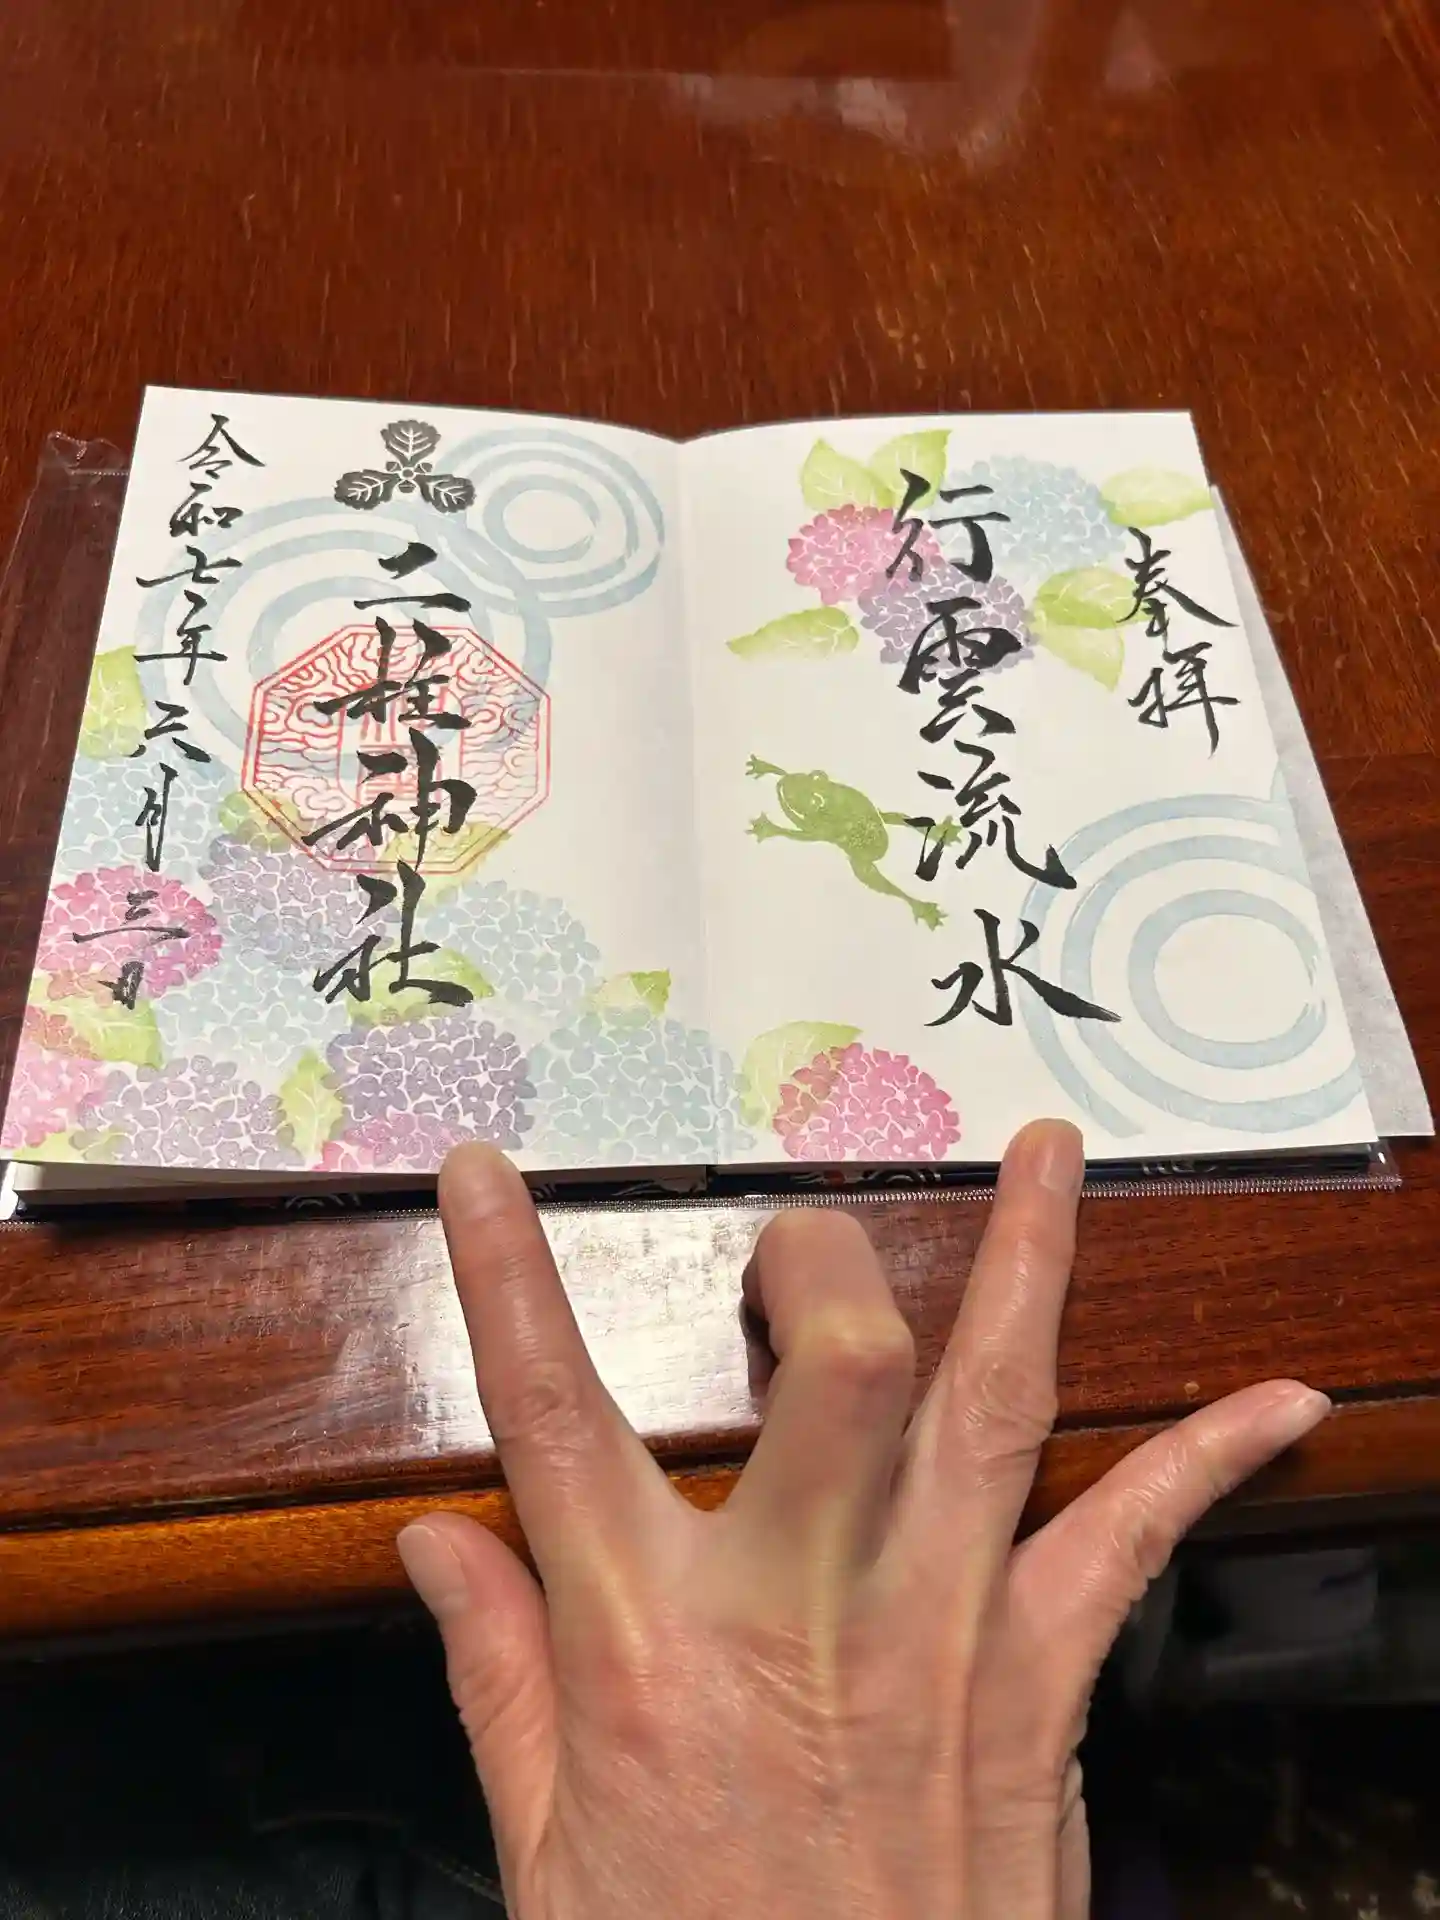 奉拝
行雲流水
二柱神社
令和七年六月三日